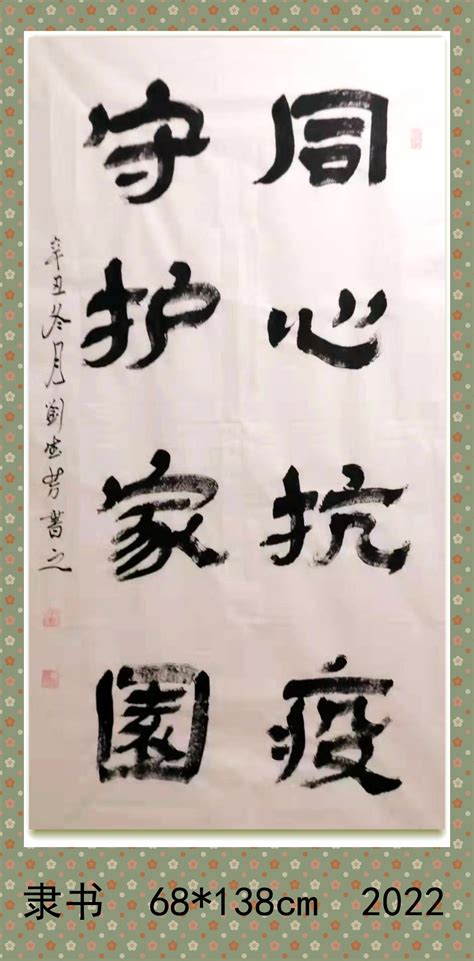 同心抗疫
守护家园
辛丑冬月刘德芳书之
隶书 68*138cm 2022